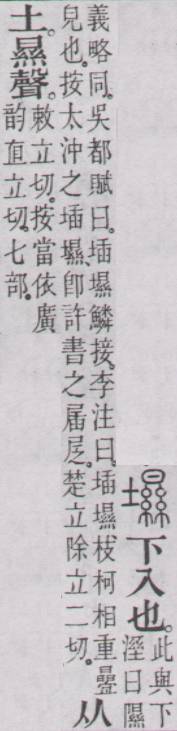 㙷下入也。
此與下
溼曰隰
義略同。吳都賦曰。㙷鱗接。李注曰。㙷、枝柯相重曡
皃也。按太沖之㙷、卽許書之。楚立除立二切。
从
土。㬎聲。
敕立切。按當依廣
韵直立切。七部。